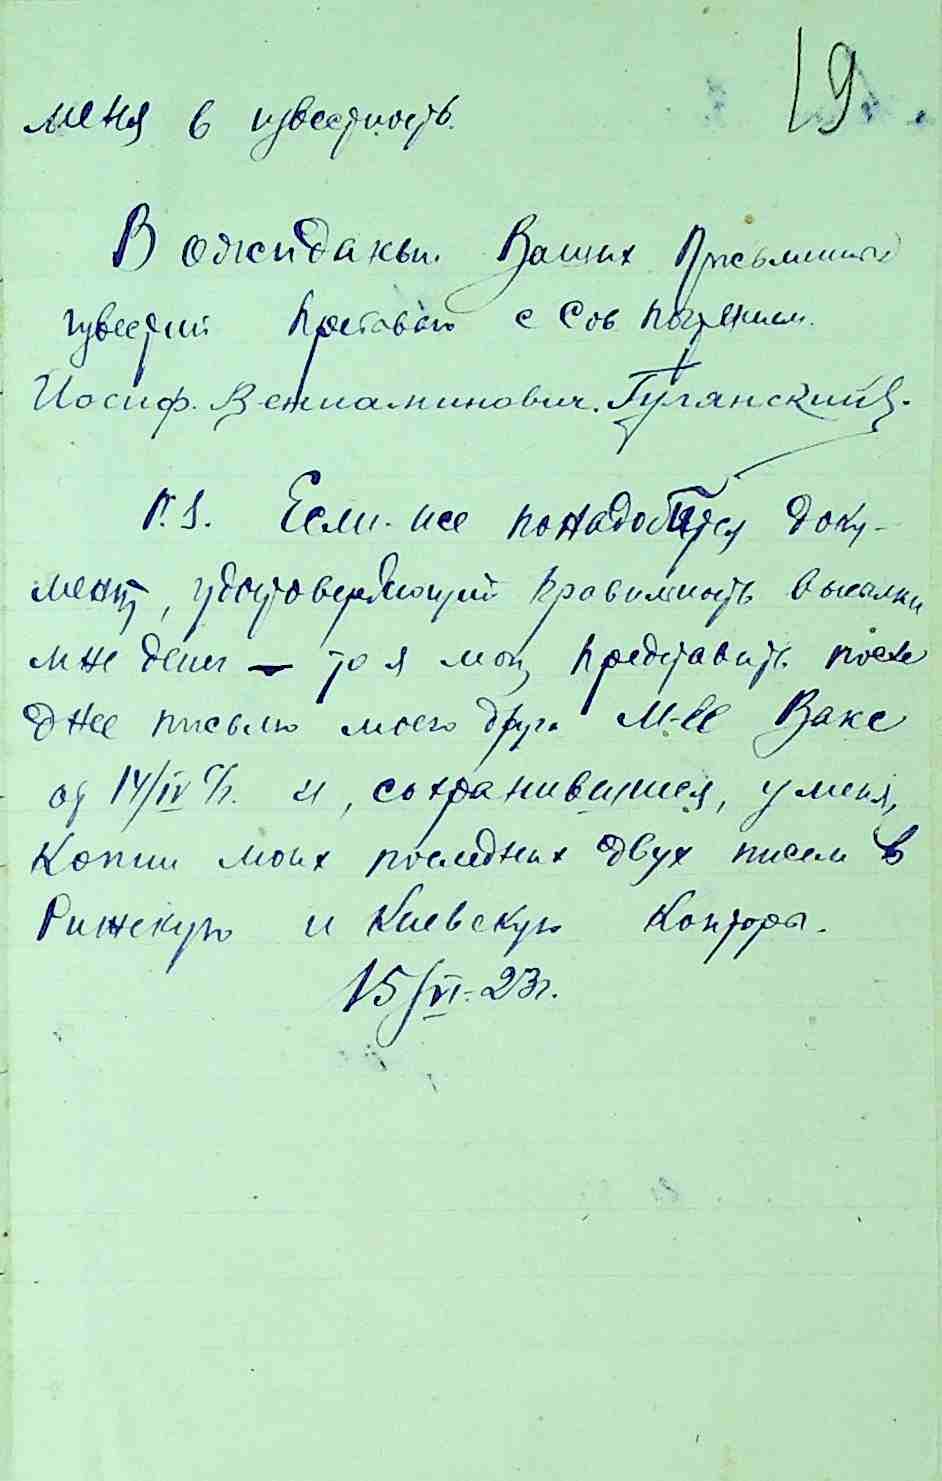 19
меня в известность.
В ожидании Ваших письменных
известий пребываю с Сов. почтением.
Иосиф Вениаминович Гулянский.
P.S. Если же понадобится доку-
мент, удостоверяющий правильность высылки
мне денег — то я могу представить послед
днее письмо моего друга М-lle Вакс
от 14/IV с/г. и, сохранившиеся, у меня,
копии моих последних двух писем в
Рижскую и Киевскую Конторы.
15/VI-23г.